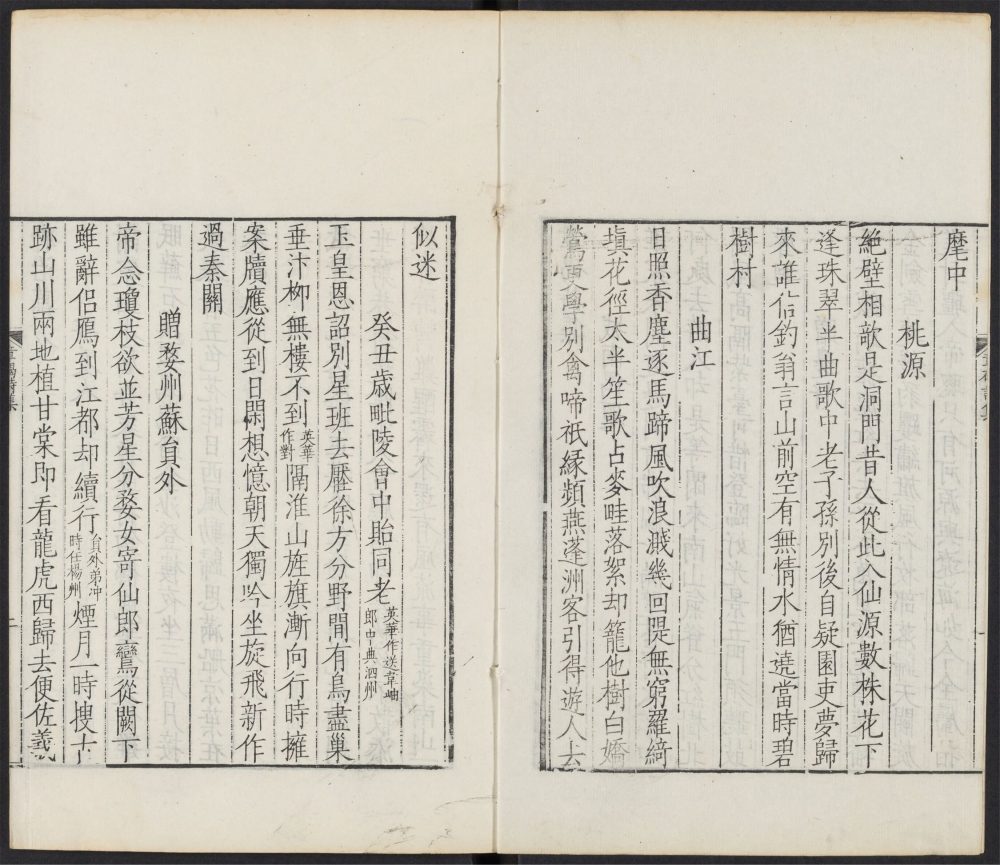 麾中
桃源
絶壁相歌是洞門昔人從此入仙源數株花下
逢珠翠半曲歌中老子孫別後自疑園吏夢歸
來誰信釣翁言山前空有無情水猶遶當時碧
樹村
曲江
日照香塵逐馬蹄風吹浪濺幾回隄無窮羅綺
塡花徑太半笙歌占麥畦落絮却籠他樹白嬌
鶯更學別禽啼祇緣頻燕蓬洲客引得遊人去
似迷
癸丑歲毗陵會中貽同老英華作送韋岫郎中典泗州
玉皇恩詔別星班去壓徐方分野間有鳥盡巢
垂汴栁無樓不到英華作對隔淮山旌旗漸向行時擁
案牘應從到日閑想憶朝天獨吟坐旋飛新作
過秦關
贈婺州蘇員外
帝念瓊枝欲並芳星分婺女寄仙郎鸞從闕下
雖辭侣鴈到江都却續行員外弟冲時任楊州煙月一時搜古
跡山川兩地植甘棠即看龍虎西歸去便佐羲